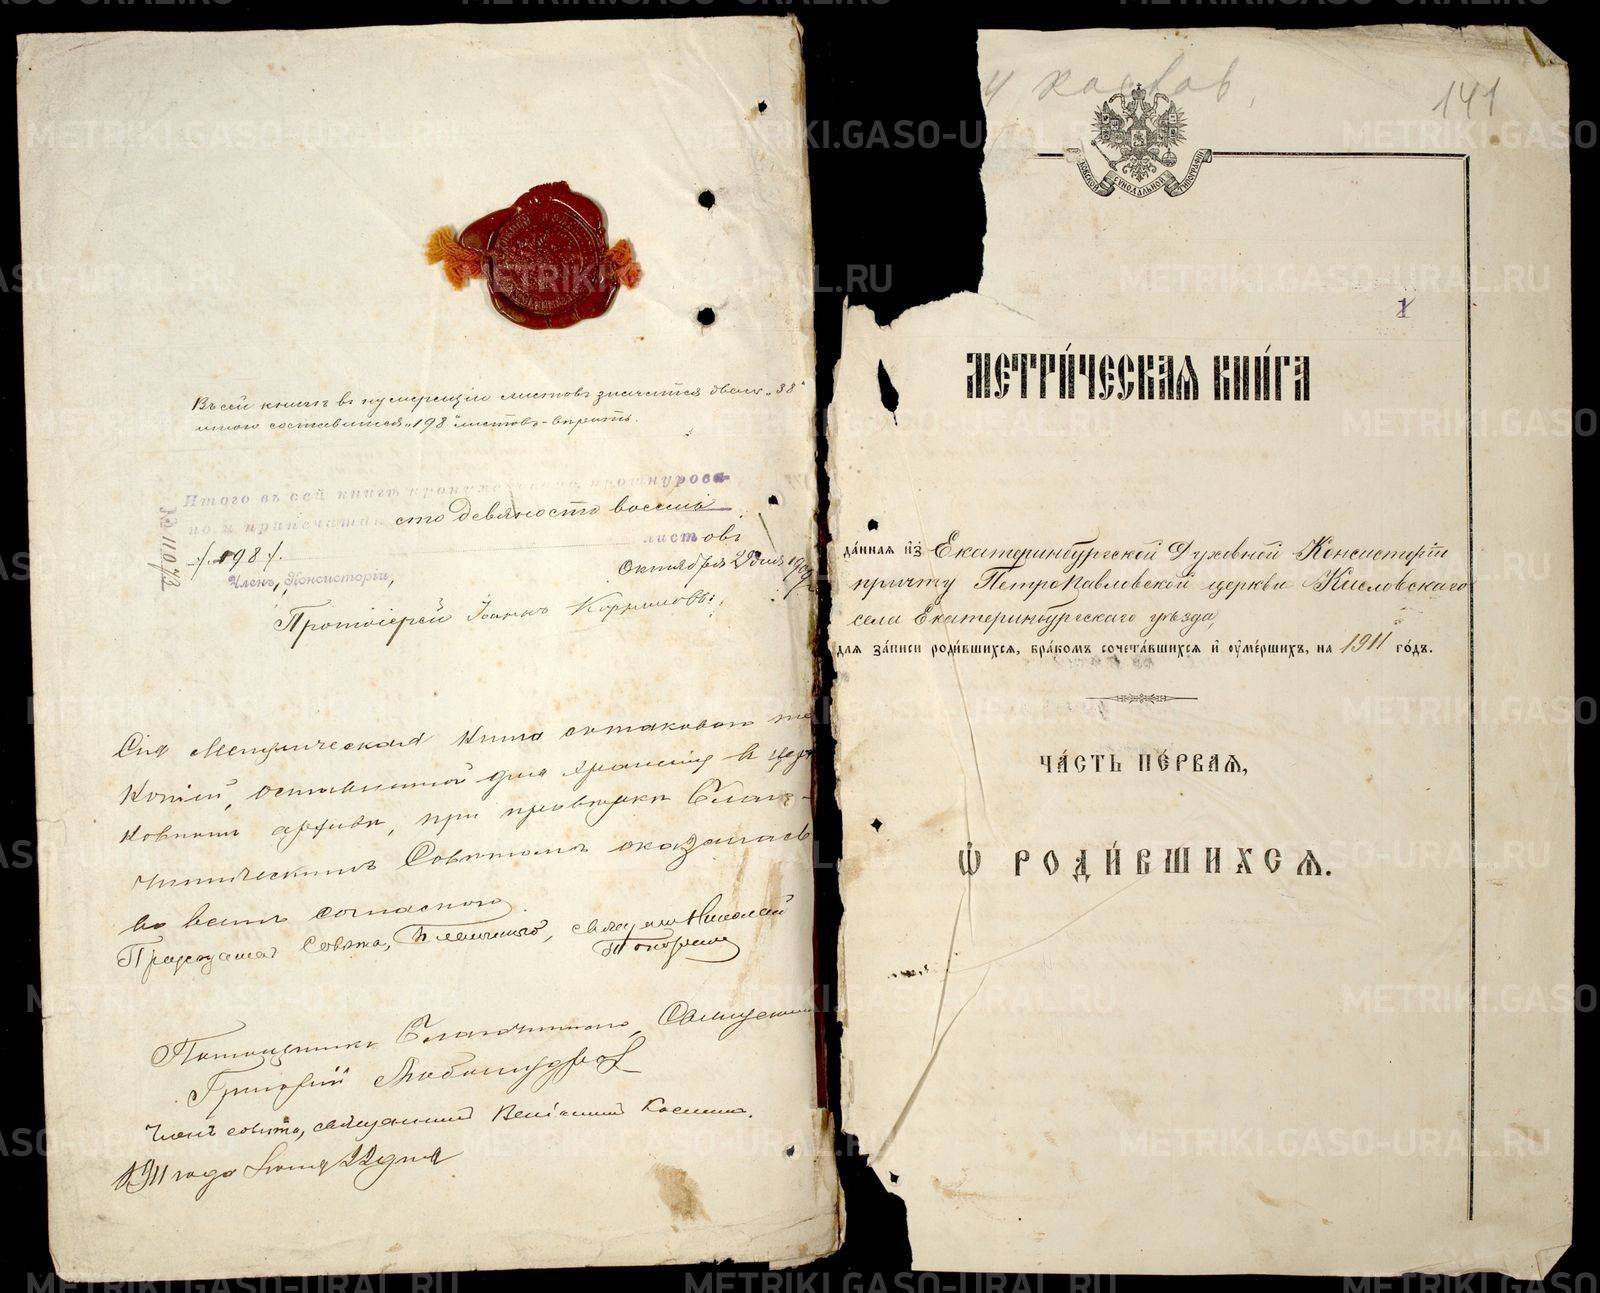 Въ сей книгѣ въ нумераціи листовъ значится два „38“
итого составится „198“ листовъ – вѣрить.
Итого въ сей книгѣ пронумеровано, прошнурова-
но и припечатано сто девяносто восемь
листовъ
/198/.
Октября 29 дня 1909 г.
Членъ Консисторіи,
Протоіерей Іоаннъ
№ 11073
Сія Метрическая Книга съ таковою же
Копіею, оставленной для храненія въ цер-
ковномъ архивѣ, при провѣркѣ Благо-
чинническимъ Совѣтомъ оказалась
во всемъ согласною.
Предсѣдатель Совѣта, Благочинный, священникъ Николай
Топорковъ
Помощникъ Благочиннаго, Священникъ
Григорій Любомудровъ
Членъ совѣта, священникъ Веніаминъ
1911 года 22 дня
141
МОСКОВСКОЙ СѴНОДАЛЬНОЙ ТИПОГРАФІИ
1
МЕТРИ́ЧЕСКАѦ КНИ́ГА
да́ннаѧ и҆з̾ Екатеринбургской Духовной Консисторіи
причту Петропавловской церкви Кисловскаго
села Екатеринбургскаго уѣзда,
длѧ за́писи роди́вшихсѧ, бра́комъ сочета́вшихсѧ и҆ ᲂу҆ме́ршихъ, на 1911 го́дъ.
ЧА́СТЬ ПЕ́РВАѦ,
Ѡ҆ РОДИ́ВШИХСѦ.
METRIKI.GASO-URAL.RU